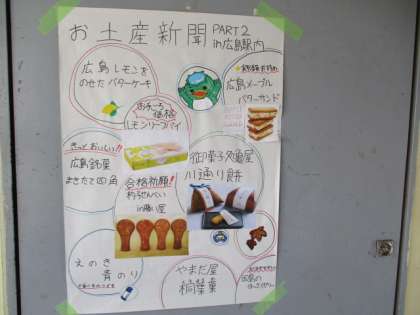 お土産新聞 PART2
in広島駅内
広島レモンを
のせたバターケーキ
お手ごろ
価格
レモンリーフパイ
広島メープル
バターサンド
きっとおいしい!!
広島銘菓
まきたて四角
合格祈願!!
杓子せんべい
in勝い屋
御菓子処亀屋
川通り餅
えのき
青のり
やまだ屋
桐葉菓
広島の